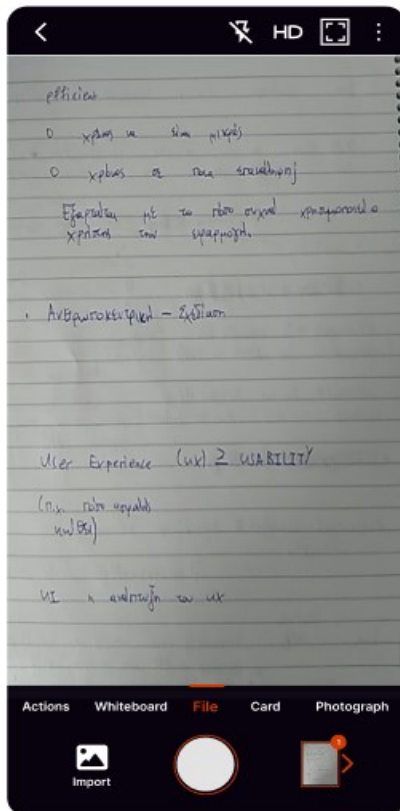 HD
efficient
Ο χρόνος να είναι μικρός
Ο χρόνος σε ποια επανάληψη
Εξαρτάται με το πόσο συχνά χρησιμοποιεί ο
χρήστης την εφαρμογή.
Ανθρωποκεντρική – Σχεδίαση
User Experience (UX) ≥ USABILITY
(π.χ. πόσο ασφαλές
UI η ανάπτυξη του UX
Actions Whiteboard File Card Photograph
Import
1